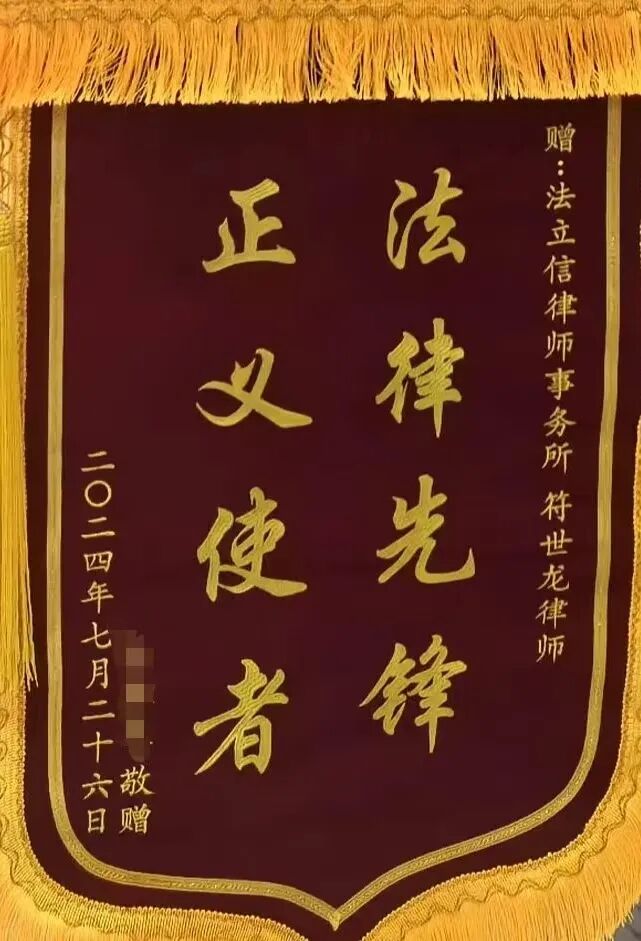 赠：法立信律师事务所 符世龙律师
法律先锋
正义使者
敬赠
二〇二四年七月二十六日